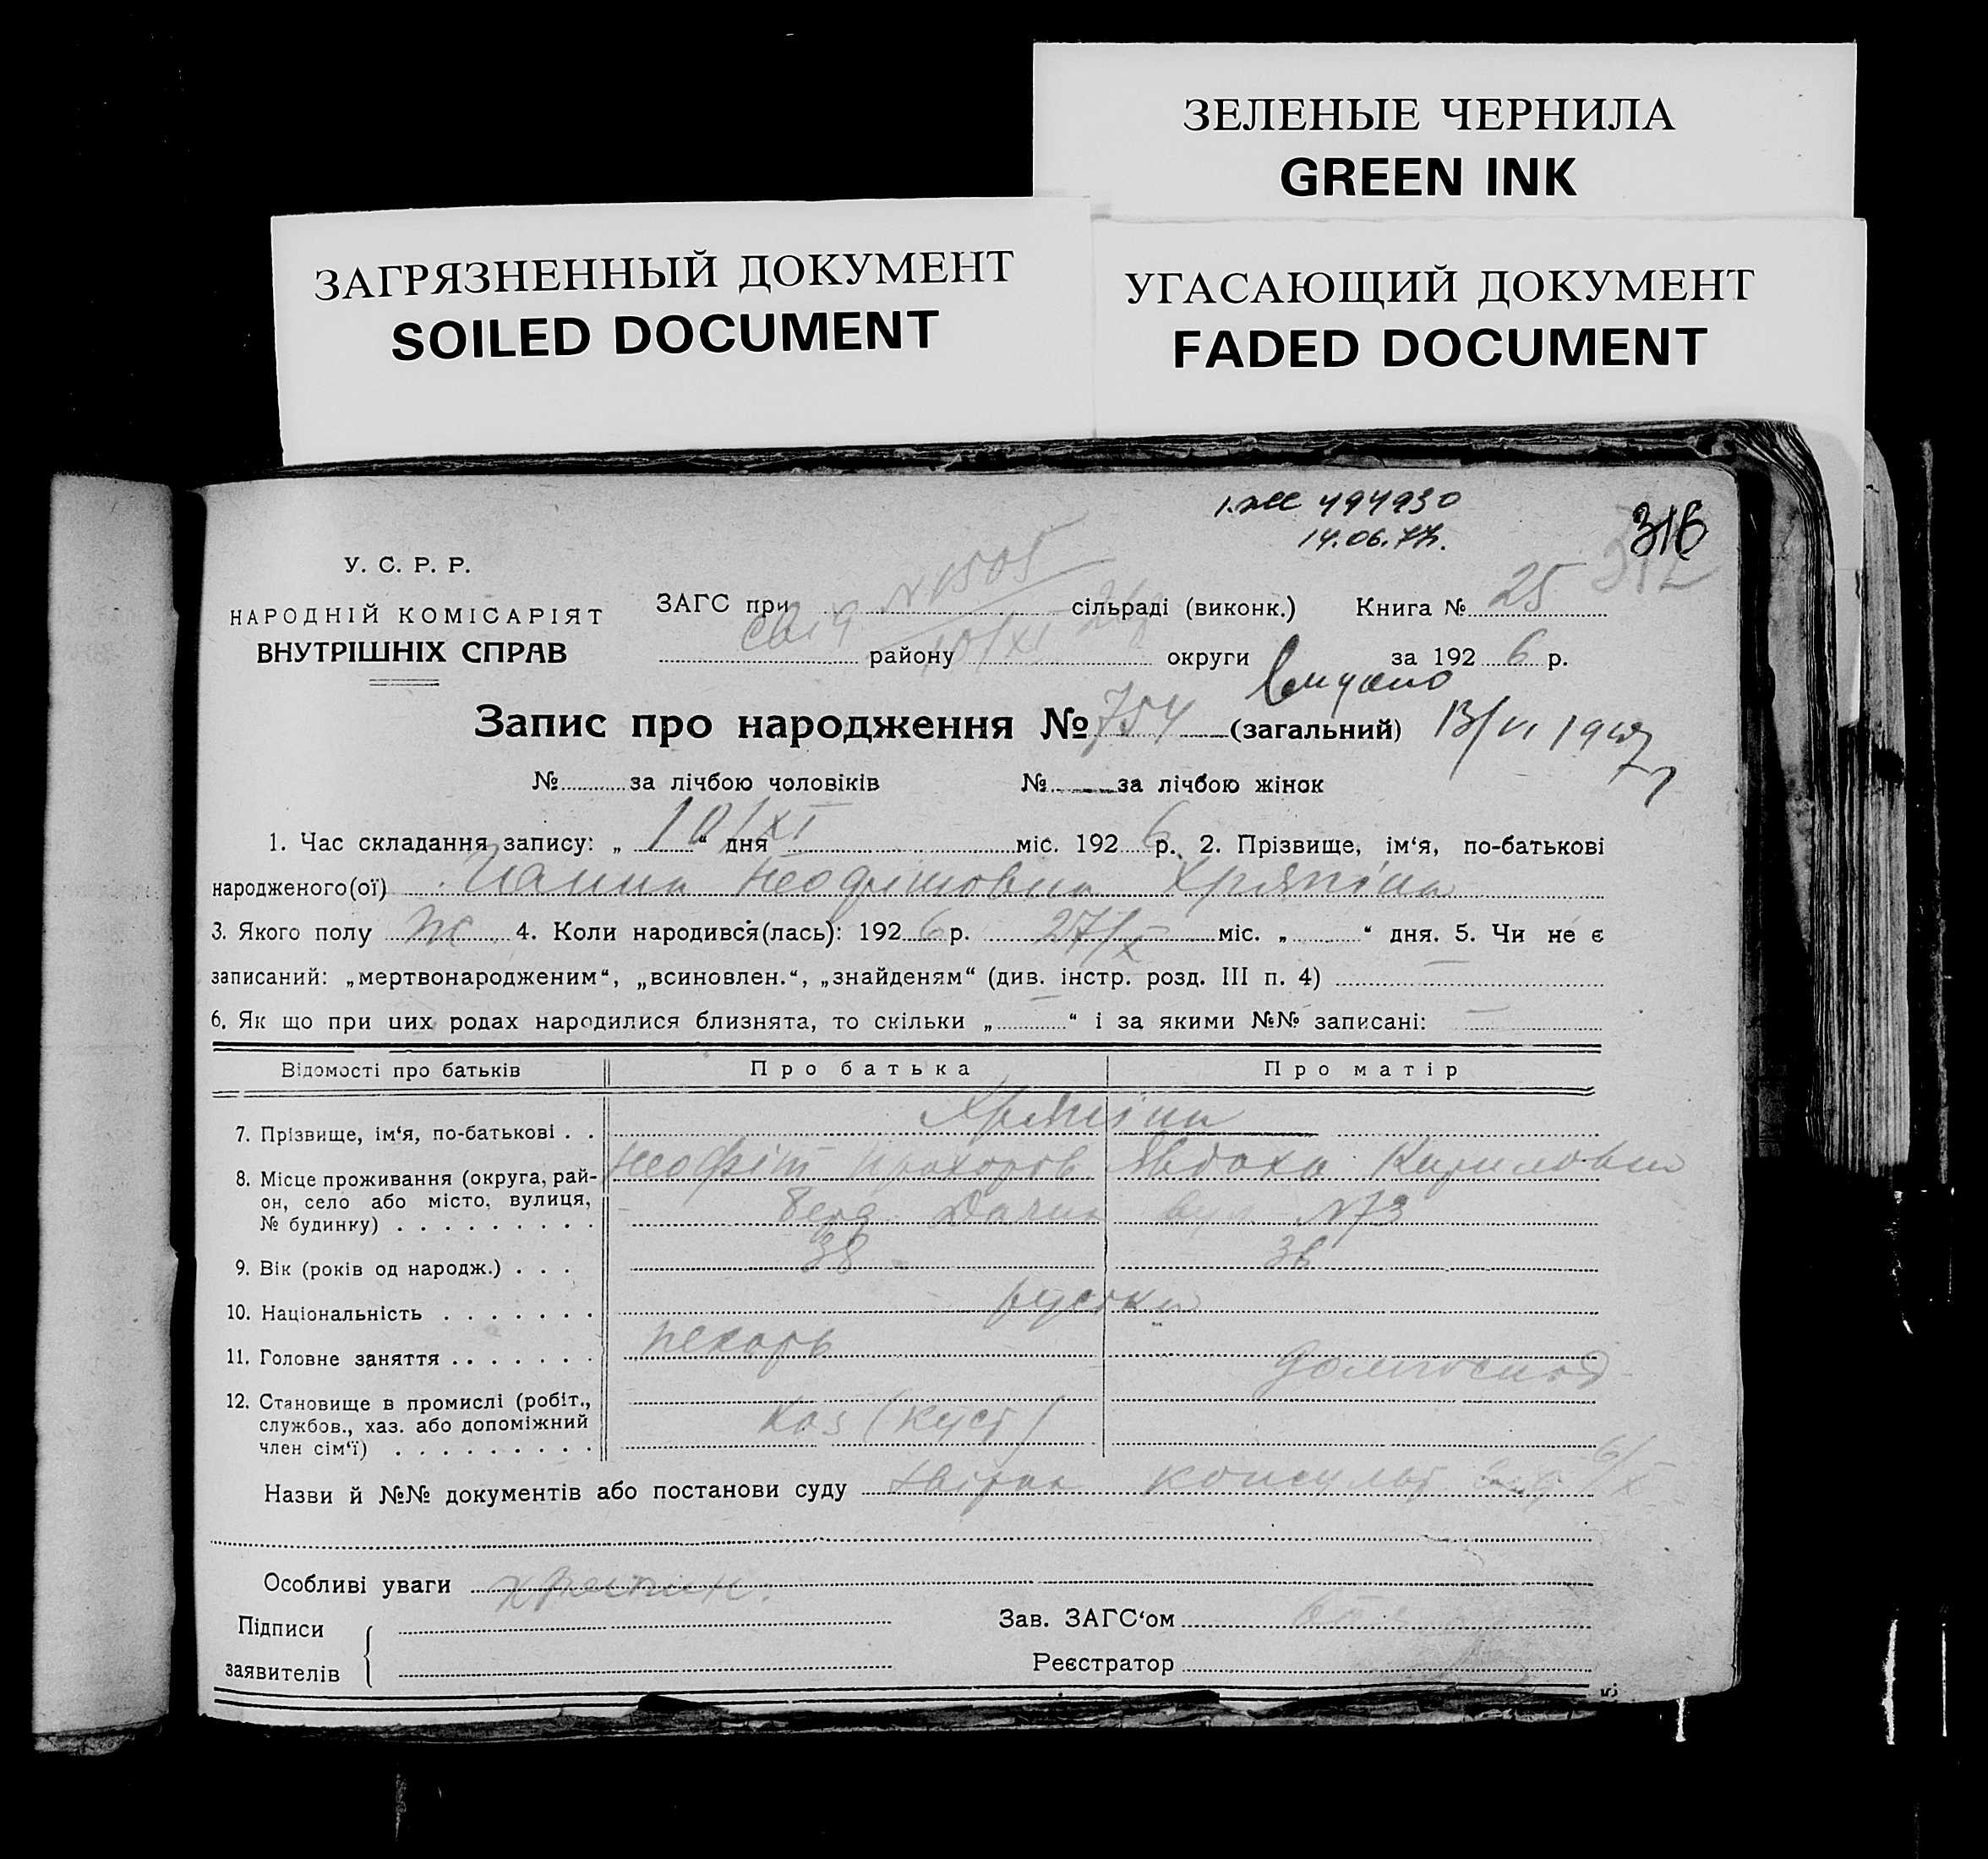 ЗЕЛЕНЫЕ ЧЕРНИЛА
GREEN INK
ЗАГРЯЗНЕННЫЙ ДОКУМЕНТ
SOILED DOCUMENT
УГАСАЮЩИЙ ДОКУМЕНТ
FADED DOCUMENT
494930
14.06.77.
316
У. С. Р. Р.
НАРОДНІЙ КОМІСАРІЯТ
ВНУТРІШНІХ СПРАВ
№1505
ЗАГС при сільраді (виконк.) Книга № 25
10/XI 26
району округи за 1926 р.
Видано
Запис про народження № 754 (загальний) 13/VI 1947
№ за лічбою чоловіків № за лічбою жінок
1. Час складання запису: „10/XI“ дня міс. 1926 р. 2. Прізвище, ім‘я, по-батькові
народженого(ої) Ганна Неофітовна Хряпіна
3. Якого полу ж 4. Коли народився(лась): 1926 р. 27/X міс. „ “ дня. 5. Чи не є
записаний: „мертвонародженим“, „всиновлен.“, „знайденям“ (див. інстр. розд. III п. 4) —
6. Як що при цих родах народилися близнята, то скільки „—“ і за якими №№ записані: —
Відомості про батьків Про батька Про матір
7. Прізвище, ім‘я, по-батькові . . Хряпіни
Неофіт Прохоров Явдоха Кириловна
8. Місце проживання (округа, рай-
он, село або місто, вулиця,
№ будинку) . . . . . . . . . Дачна вул. №73
9. Вік (років од народж.) . . . 38 36
10. Національність . . . . . . . руські
11. Головне заняття . . . . . . . пекарь домгоспод
12. Становище в промислі (робіт.,
службов., хаз. або допоміжний
член сім‘ї) . . . . . . . . . Хаз (куст)
Назви й №№ документів або постанови суду консульт 6/X
Особливі уваги хряпин.
Підписи
заявителів
Зав. ЗАГС‘ом
Реєстратор